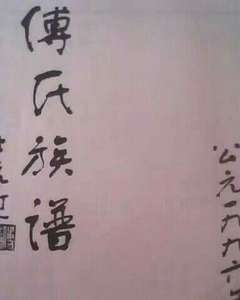 公元一九九六
傅氏族谱